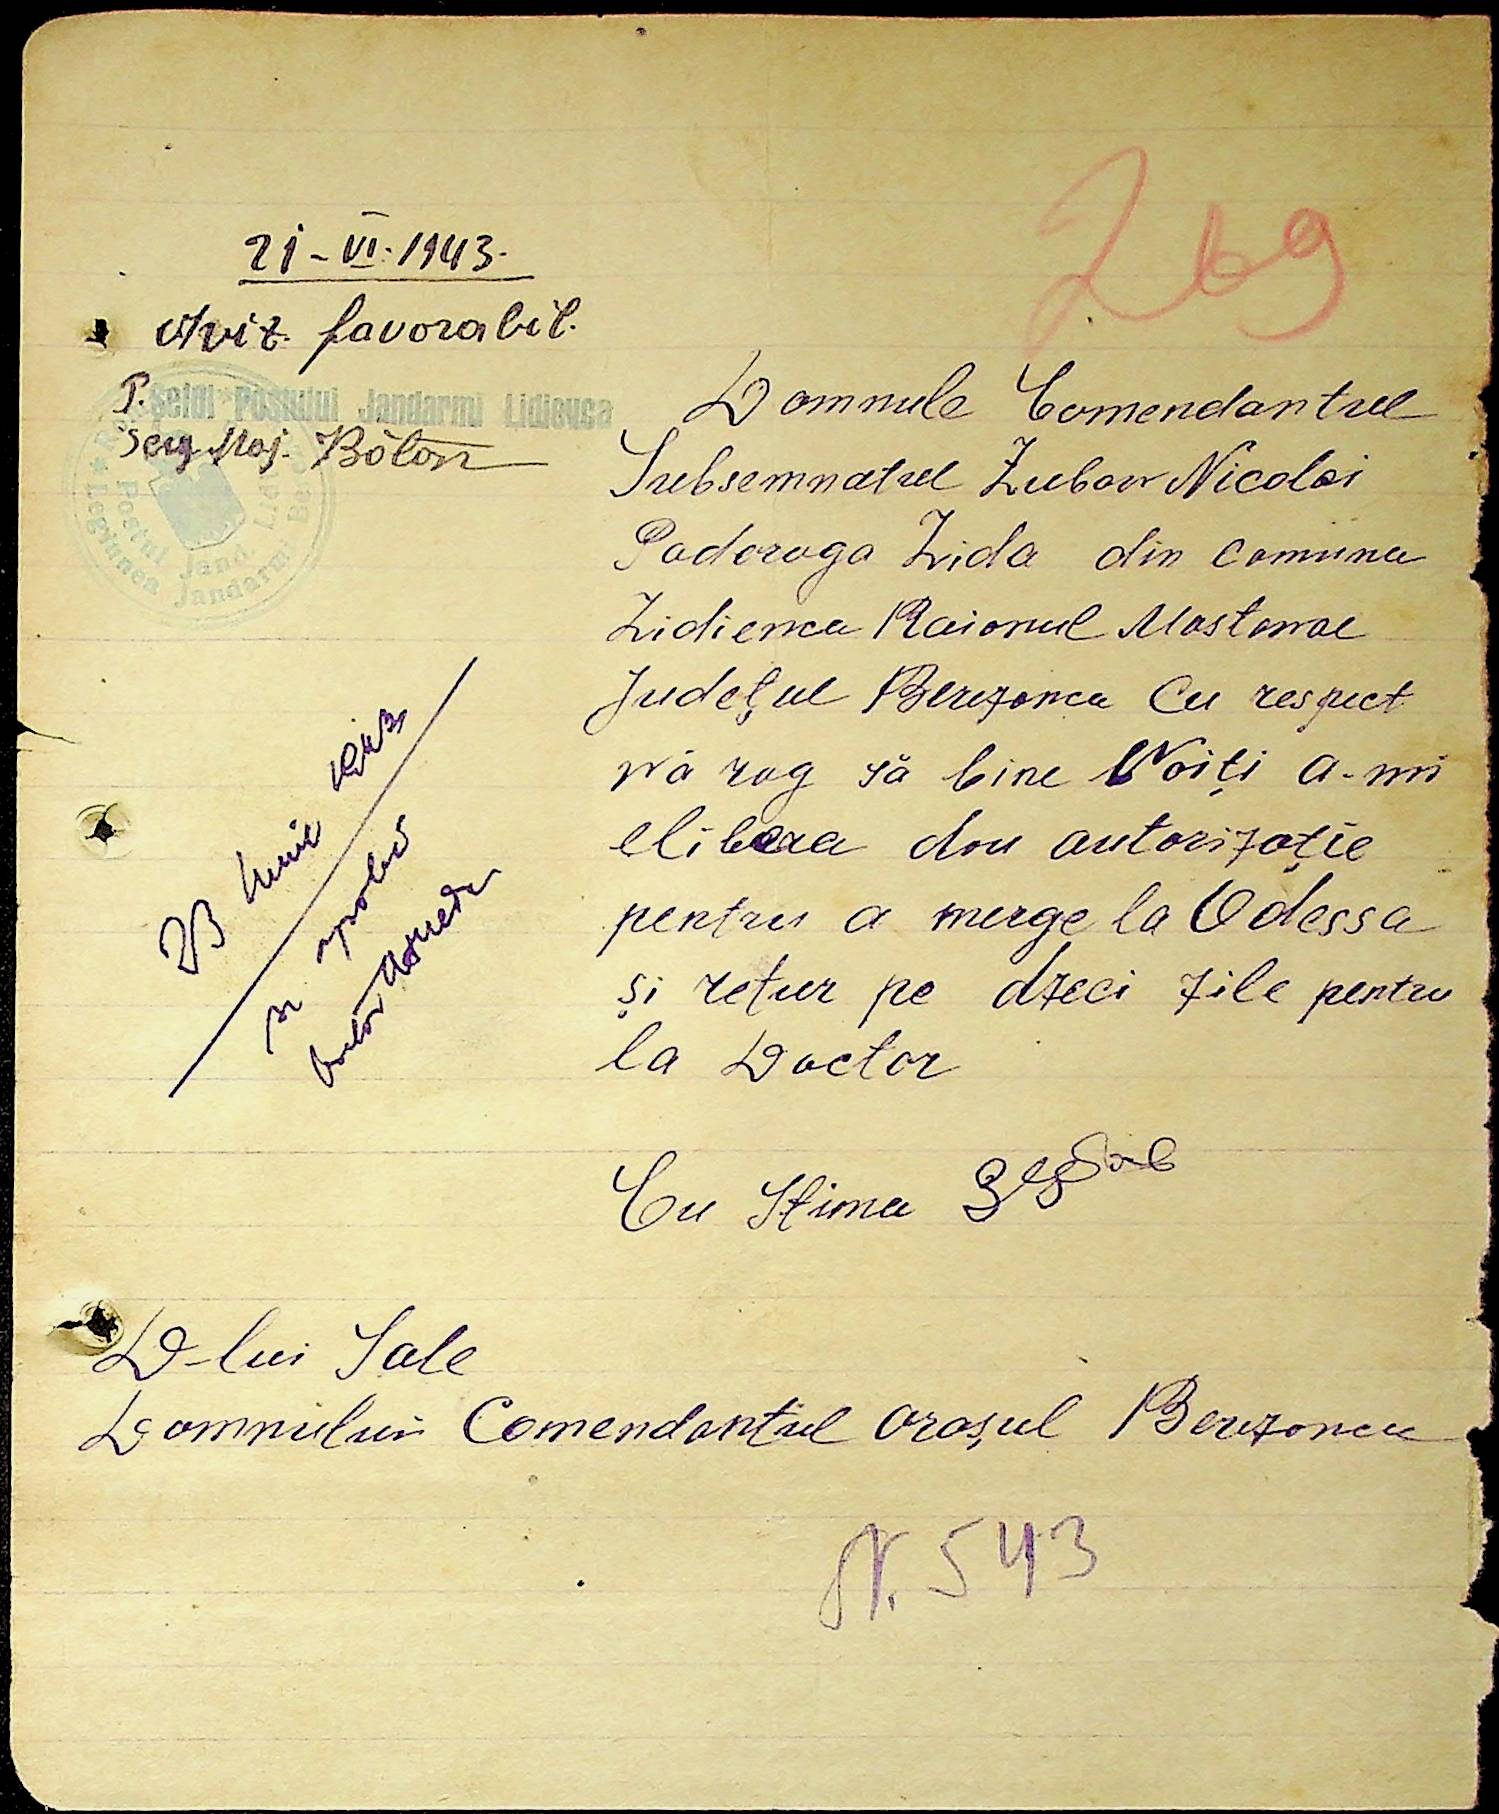 269
21-VI-1943.
Aviz favorabil.
P. Șeful Postului Jandarmi Lidievca
Serg Maj. Boton
Postul Jand.
Legiunea Jandarmi
Domnule Comendantul
Subsemnatul Zubov Nicolai
Podoroga Lida din comuna
Lidienca Raionul Mostovoe
Județul Berezonca Cu respect
vă rog să bine Voiți a-mi
elibera dou autorizație
pentru a merge la Odessa
și retur pe dzeci zile pentru
la Doctor
23 Iunie 1943
se aprobă
Cu Stima Зубов
D-lui Sale
Domnului Comendantul orașul Berezonca
N. 543